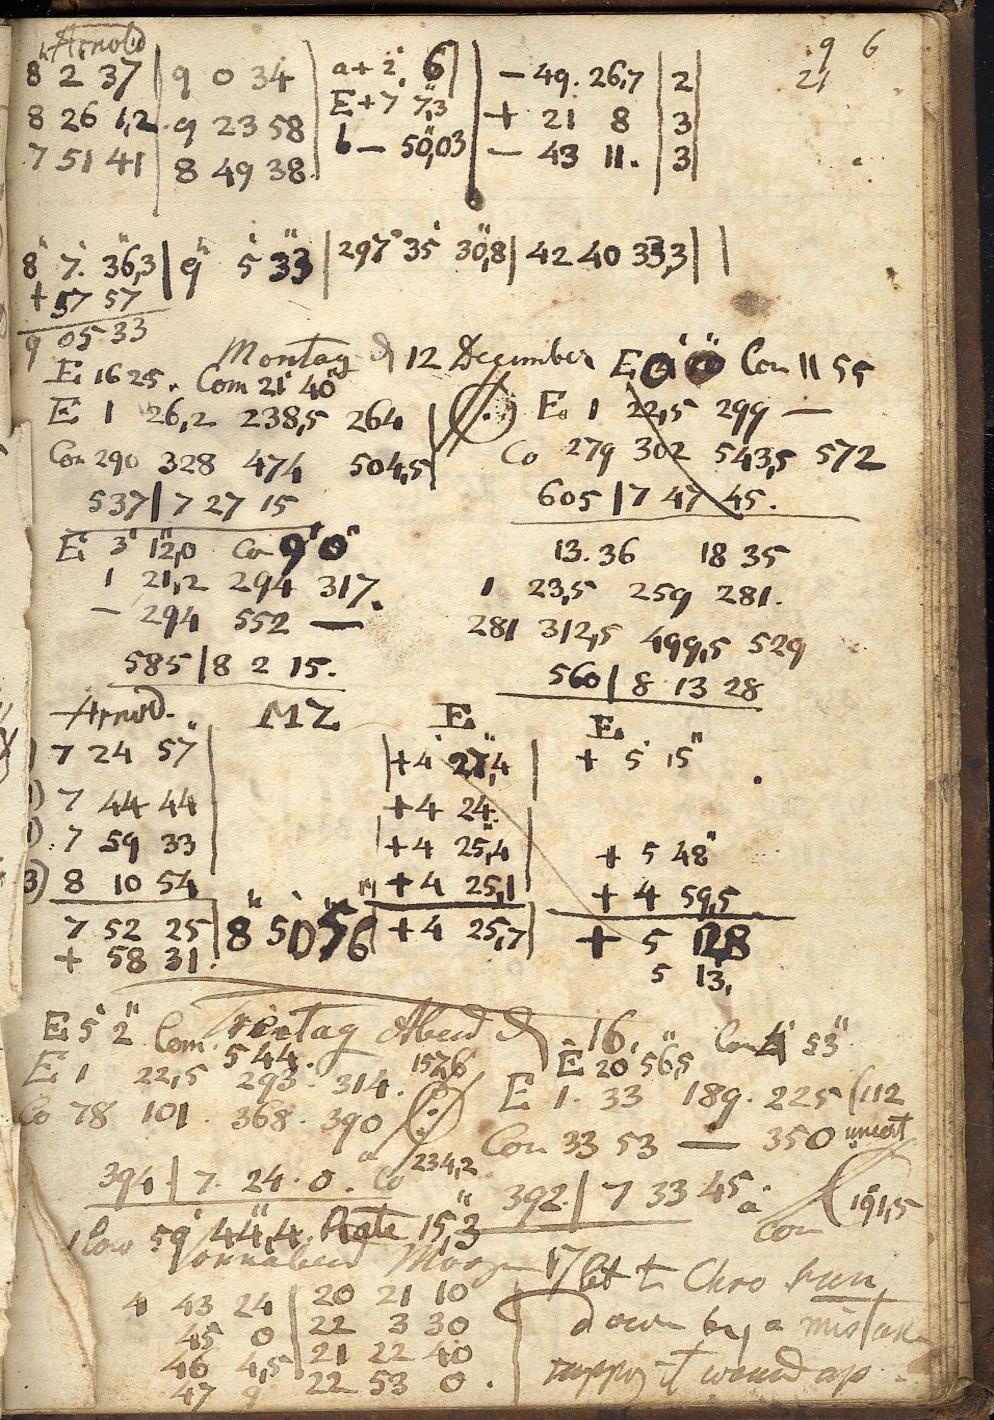 Arnold
9 6
21
8 2 37 | 9 0 34 | a + 2' 6" | - 49. 26,7 | 2
8 26 1,2 . 9 23 58 | E + 7 7,3 | + 21 8 | 3
7 51 41 | 8 49 38 | b - 50,03 | - 43 11. | 3
8h 7' 36,3" | 9h 5' 33" | 297° 35' 30,8" | 42 40 33,3 |
+ 57 57
9 05 33
Montag d 12 December E 0' 0" Com 11 55
E 16 25. Com 21' 40"
E 1 26,2 238,5 264 | E. 1 22,5 299 —
Com 290 328 474 504,5 | Co 279 302 543,5 572
537 | 7 27 15 605 | 7 47 45.
E 3' 12,0" Co 9' 0" 13. 36 18 35
1 21,2 294 317. 1 23,5 259 281.
— 294 552 — 281 312,5 499,5 529
585 | 8 2 15. 560 | 8 13 28
Arnold. MZ E E.
7 24 57" | + 4' 27,4" | + 5' 15"
7 44 44 + 4 24.
7 59 33 + 4 25,4 + 5 48"
3) 8 10 54 + 4 25,1 + 4 59,5
7 52 25 | 8h 50' 56" | + 4 25,7 | + 5 128
+ 58 31. 5 13,
Freitag Abend d 16.
E 5' 2" Com 544. E 20' 56,5" Com 4' 53"
E 1 22,5 293. 314. 1576 E 1. 33 189. 225 (112
Co 78 101. 368. 390 Com 33 53 — 350 uncert
394 | 7. 24. 0. Co 234,2 392. | 7 33 45. a Com 191,5
slow 59' 44",4. Rate 15",3
Sonnabend Morgen 17 let t Chro run
4 43 24 | 20 21 10 down by a mistake
45 0 | 22 3 30
46 4,5 | 21 22 40 suppos it wound up.
47 9 22 53 0.